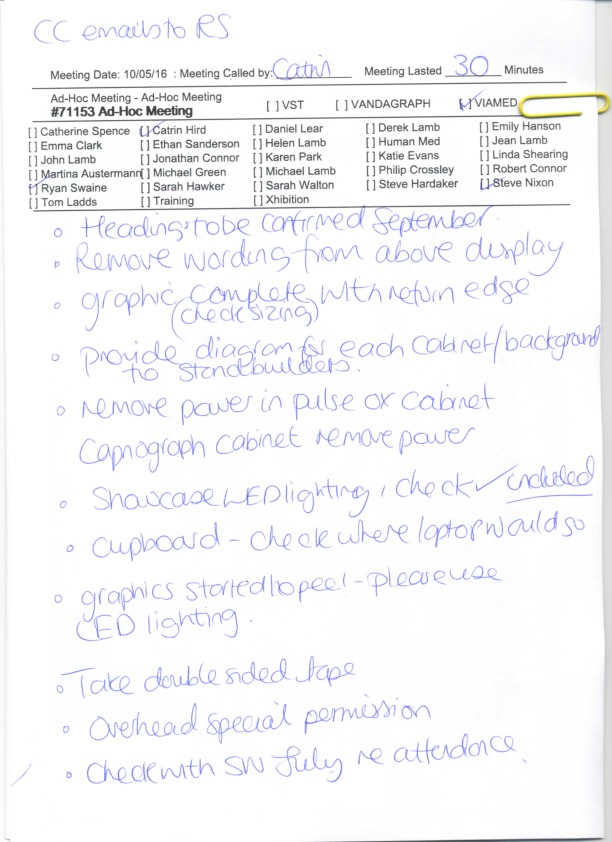 CC emails to RS
Meeting Date: 10/05/16 : Meeting Called by: Catrin Meeting Lasted 30 Minutes
Ad-Hoc Meeting - Ad-Hoc Meeting
#71153 Ad-Hoc Meeting [ ] VST [ ] VANDAGRAPH [✓] VIAMED
[ ] Catherine Spence [✓] Catrin Hird [ ] Daniel Lear [ ] Derek Lamb [ ] Emily Hanson
[ ] Emma Clark [ ] Ethan Sanderson [ ] Helen Lamb [ ] Human Med [ ] Jean Lamb
[ ] John Lamb [ ] Jonathan Connor [ ] Karen Park [ ] Katie Evans [ ] Linda Shearing
[ ] Martina Austermann [ ] Michael Green [ ] Michael Lamb [ ] Philip Crossley [ ] Robert Connor
[✓] Ryan Swaine [ ] Sarah Hawker [ ] Sarah Walton [ ] Steve Hardaker [✓] Steve Nixon
[ ] Tom Ladds [ ] Training [ ] Xhibition
• Headings to be confirmed September.
• Remove wording from above display
• graphic complete with return edge
(check sizing)
• provide diagram for each cabinet/background
to standbuilders.
• remove power in pulse ox cabinet
Capnograph cabinet remove power
• Showcase LED lighting, check ✓ included
• Cupboard - check where laptop would go
• graphics started to peel - please use
LED lighting.
• Take double sided tape
• Overhead special permission
• Check with SN July re attendance.